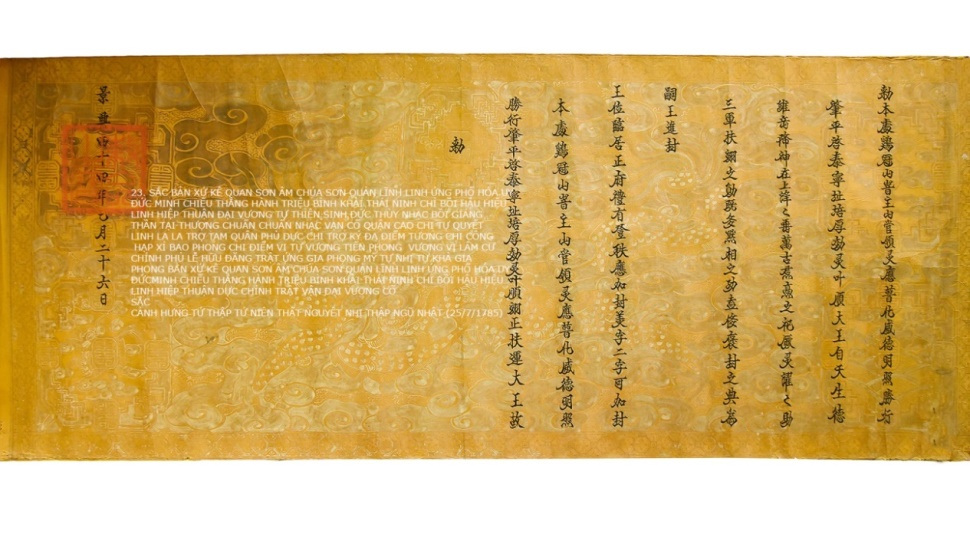 勅本處鷄冠山岧當領灵應普化威德明照勝行
肇平啓泰寧址培厚勛灵叶順大王自天生德
維岳降神在上洋々番萬古焄蒿之祀厥灵濯々助
三軍扶翊之勛既多照相之功盍侈褒封之典為
嗣王進封
王位臨居正府禮有登秩應加封美字二字可加封
本處鷄冠山岧王山當領灵應普化威德明照
勝行肇平啓泰寧址培厚勛灵叶順翊正扶運大王故
勅
景興四十四年七月二十六日
23, SẮC BẢN XỨ KÊ QUAN SƠN ÂM CHÚA SƠN QUÂN LĨNH LINH ỨNG PHỔ HÓA UY
ĐỨC MINH CHIẾU THẮNG HÀNH TRIỆU BÌNH KHẢI THÁI NINH CHỈ BỒI HẬU HIỂU
LINH HIỆP THUẬN ĐẠI VƯƠNG TỰ THIÊN SINH ĐỨC THÙY NHẠC BỜI GIÁNG
THẦN TẠI THƯỢNG CHUẨN CHUẨN NHẠC VẠN CỔ QUÂN CAO CHI TỰ QUYẾT
LINH LA LA TRỢ TAM QUÂN PHÙ DỰC CHI TRỢ KÝ ĐA ĐIỂM TƯƠNG CHI CÔNG
HẠP XỈ BAO PHONG CHI ĐIỂM VI TỰ VƯƠNG TIẾN PHONG VƯƠNG VỊ LÂM CƯ
CHÍNH PHỦ LỄ HỮU ĐĂNG TRẬT ỨNG GIA PHONG MỸ TỰ NHỊ TỰ KHẢ GIA
PHONG BẢN XỨ KÊ QUAN SƠN ÂM CHÚA SƠN QUÂN LĨNH LINH ỨNG PHỔ HÓA UY
ĐỨCMINH CHIẾU THẮNG HÀNH TRIỆU BÌNH KHẢI THÁI NINH CHỈ BỒI HẬU HIỂU
LINH HIỆP THUẬN DỰC CHÍNH TRẬT VẬN ĐẠI VƯƠNG CỐ
SẮC
CẢNH HƯNG TỨ THẬP TỨ NIÊN THẤT NGUYỆT NHỊ THẬP NGŨ NHẬT (25/7/1785)